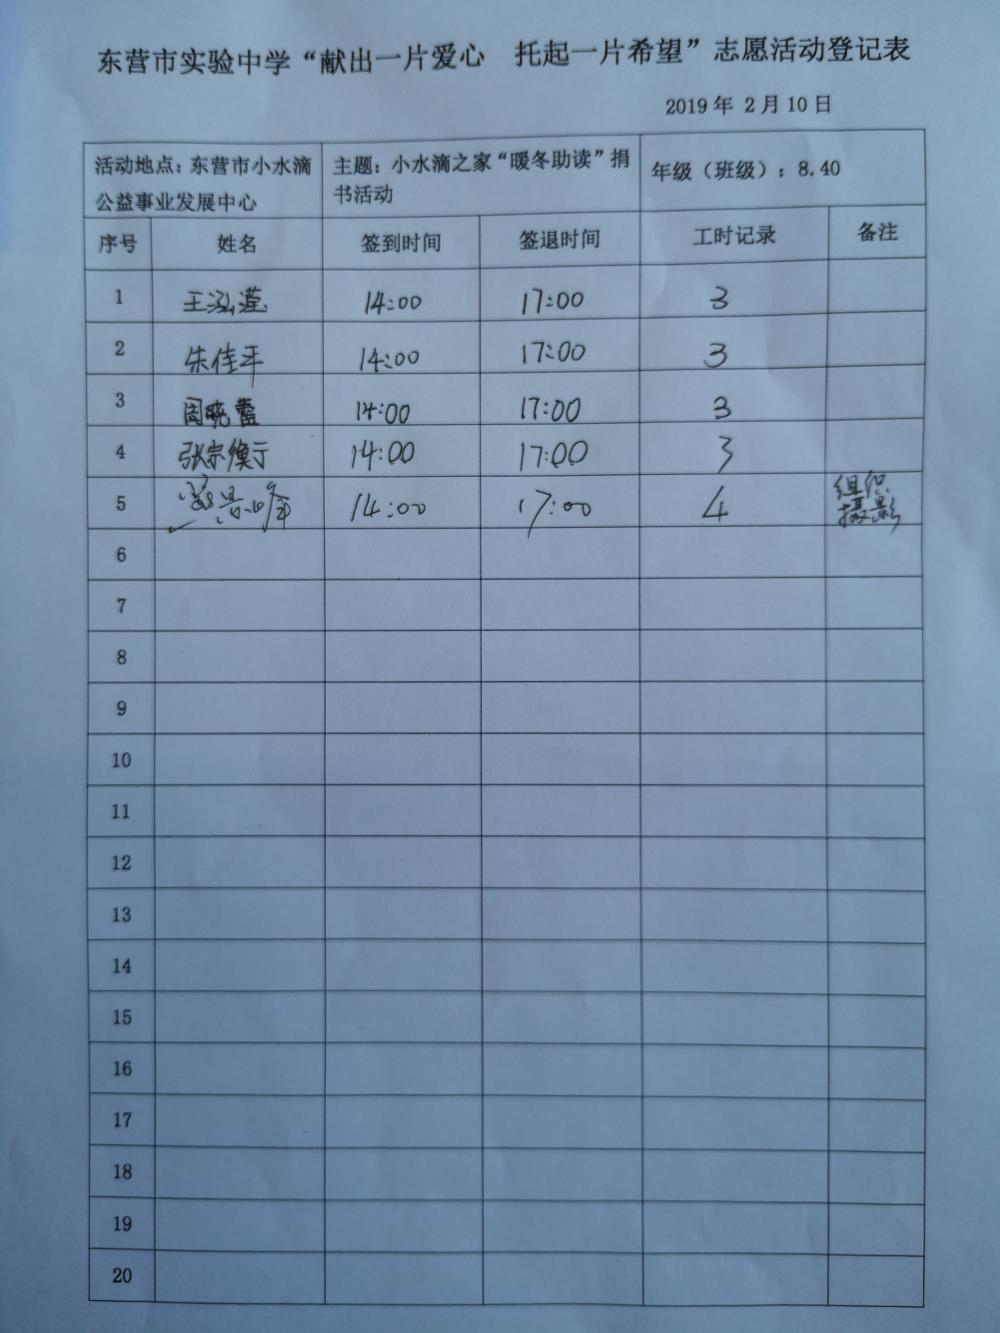 东营市实验中学“献出一片爱心 托起一片希望”志愿活动登记表
2019 年 2 月 10 日
活动地点：东营市小水滴
公益事业发展中心
主题：小水滴之家“暖冬助读”捐
书活动
年级（班级）：8.40
序号 姓名 签到时间 签退时间 工时记录 备注
1 王泓滢 14:00 17:00 3
2 朱佳平 14:00 17:00 3
3 周晓 14:00 17:00 3
4 张宗衡 14:00 17:00 3
5 14:00 17:00 4 组织
摄影
6
7
8
9
10
11
12
13
14
15
16
17
18
19
20